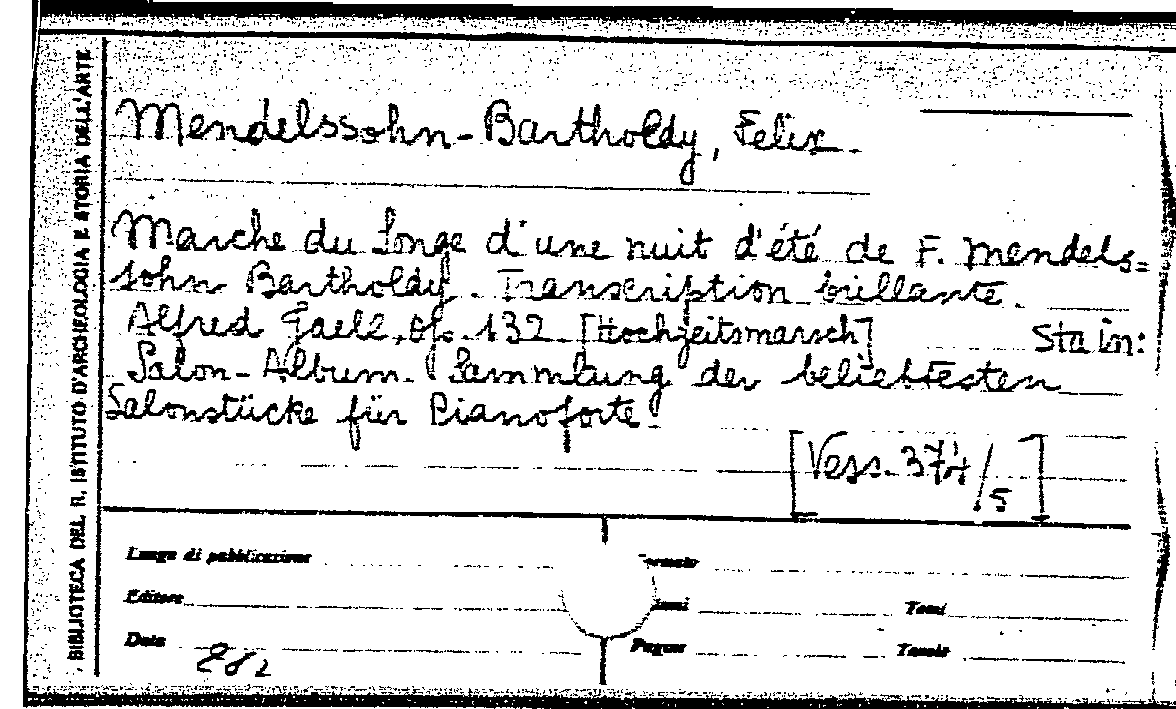 BIBLIOTECA DEL R. ISTITUTO D'ARCHEOLOGIA E STORIA DELL'ARTE
Mendelssohn-Bartholdy, Felix.
Marche du Songe d'une nuit d'été de F. Mendels=
sohn Bartholdy. Transcription brillante.
Alfred Jaell, op. 132 [Hochzeitsmarsch] Sta in:
Salon-Album. Sammlung der beliebtesten
Salonstücke für Pianoforte.
[Vess. 374/5]
Luogo di pubblicazione
Editore
Tomi
Data
Pagine
Tavole